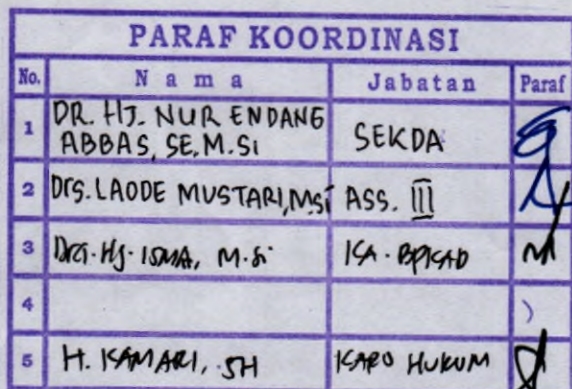 PARAF KOORDINASI
No. Nama Jabatan Paraf
1 DR. HJ. NUR ENDANG ABBAS, SE, M.Si SEKDA
2 Drs. LAODE MUSTARI, MSi ASS. III
3 Dra. Hj. ISMA, M.Si KA. BPKAD
4
5 H. KAMARI, SH KARO HUKUM